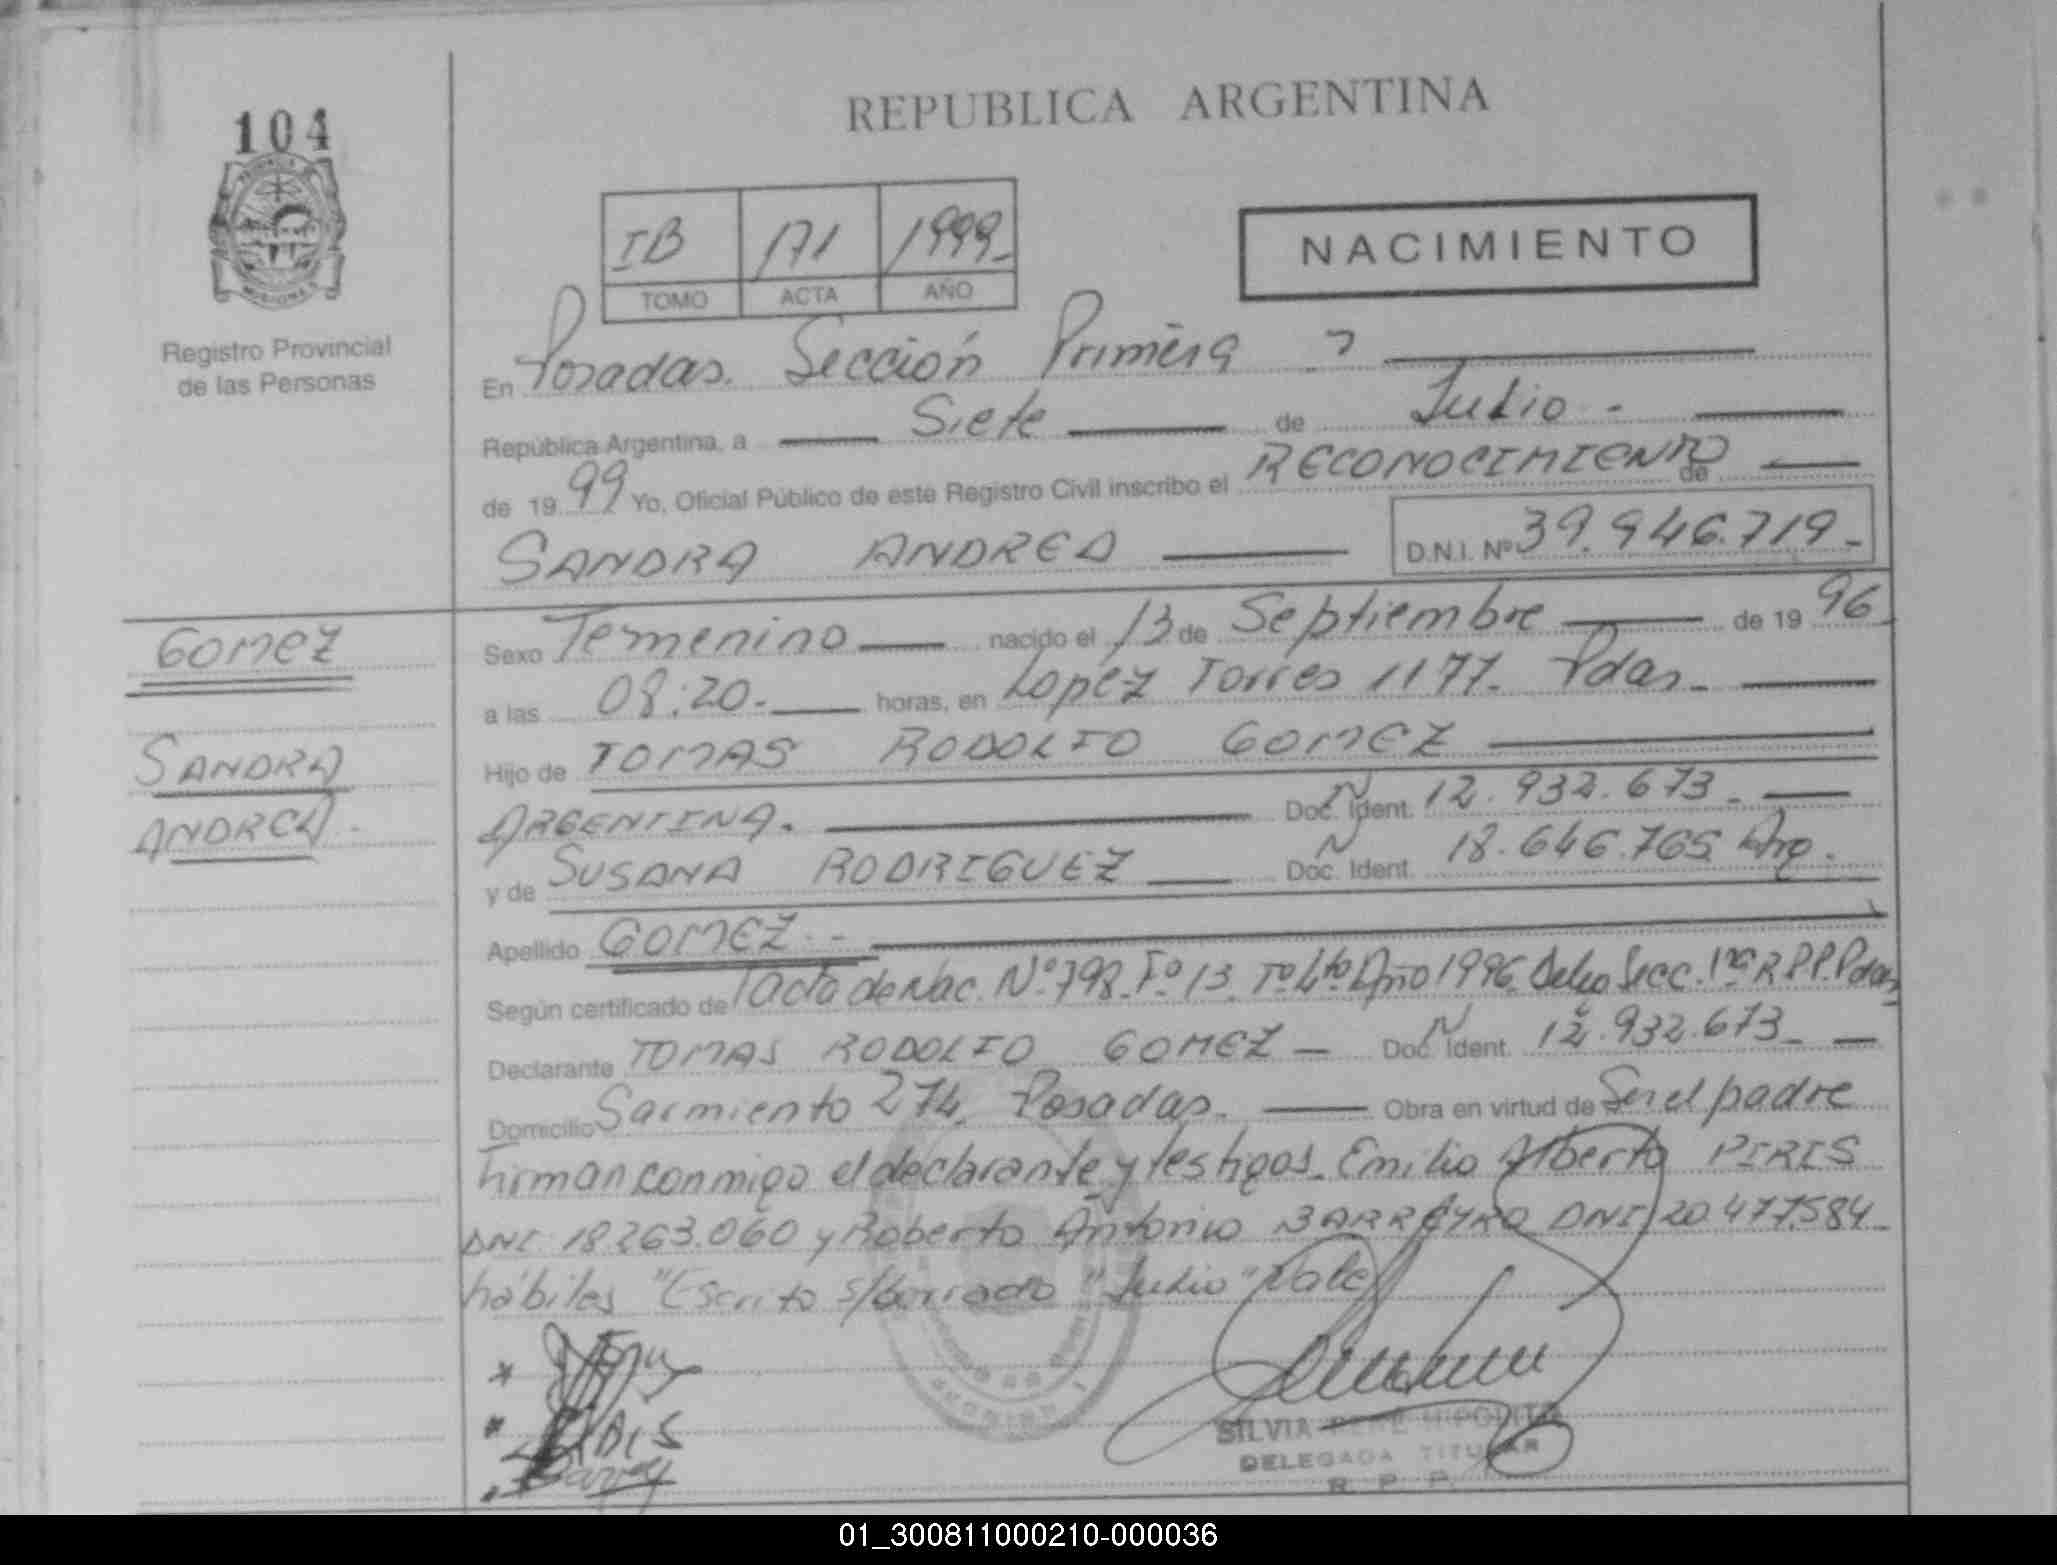 104
REPUBLICA ARGENTINA
IB 171 1999
TOMO ACTA AÑO
NACIMIENTO
Registro Provincial
de las Personas
En Posadas. Sección Primera
República Argentina, a Siete de Julio
de 1999 Yo, Oficial Público de este Registro Civil inscribo el RECONOCIMIENTO de
SANDRA ANDREA D.N.I. Nº 39.946.719
GOMEZ
SANDRA
ANDREA
Sexo Femenino nacido el 13 de Septiembre de 1996
a las 08:20 horas, en Lopez Torres 1177. Pdas.
Hijo de TOMAS RODOLFO GOMEZ
ARGENTINA. Doc. Ident. 12.932.673
y de SUSANA RODRIGUEZ Doc. Ident. 18.646.765 Arg.
Apellido GOMEZ
Según certificado de Acta de Nac. Nº 798 Fº 13 Tº 4to Año 1996 Secc. 1ra R.P.P. Pdas
Declarante TOMAS RODOLFO GOMEZ Doc. Ident. 12.932.673
Domicilio Sarmiento 274 Posadas. Obra en virtud de Ser el padre
Firman conmigo el declarante y testigos Emilio Alberto PIRIS
DNI 18.263.060 y Roberto Antonio BARREYRO DNI 20.477.584
hábiles "Escrito s/borrado "Julio" Vale
SILVIA HIPOLITO
DELEGADA TITULAR
R. P. P.
01_300811000210-000036